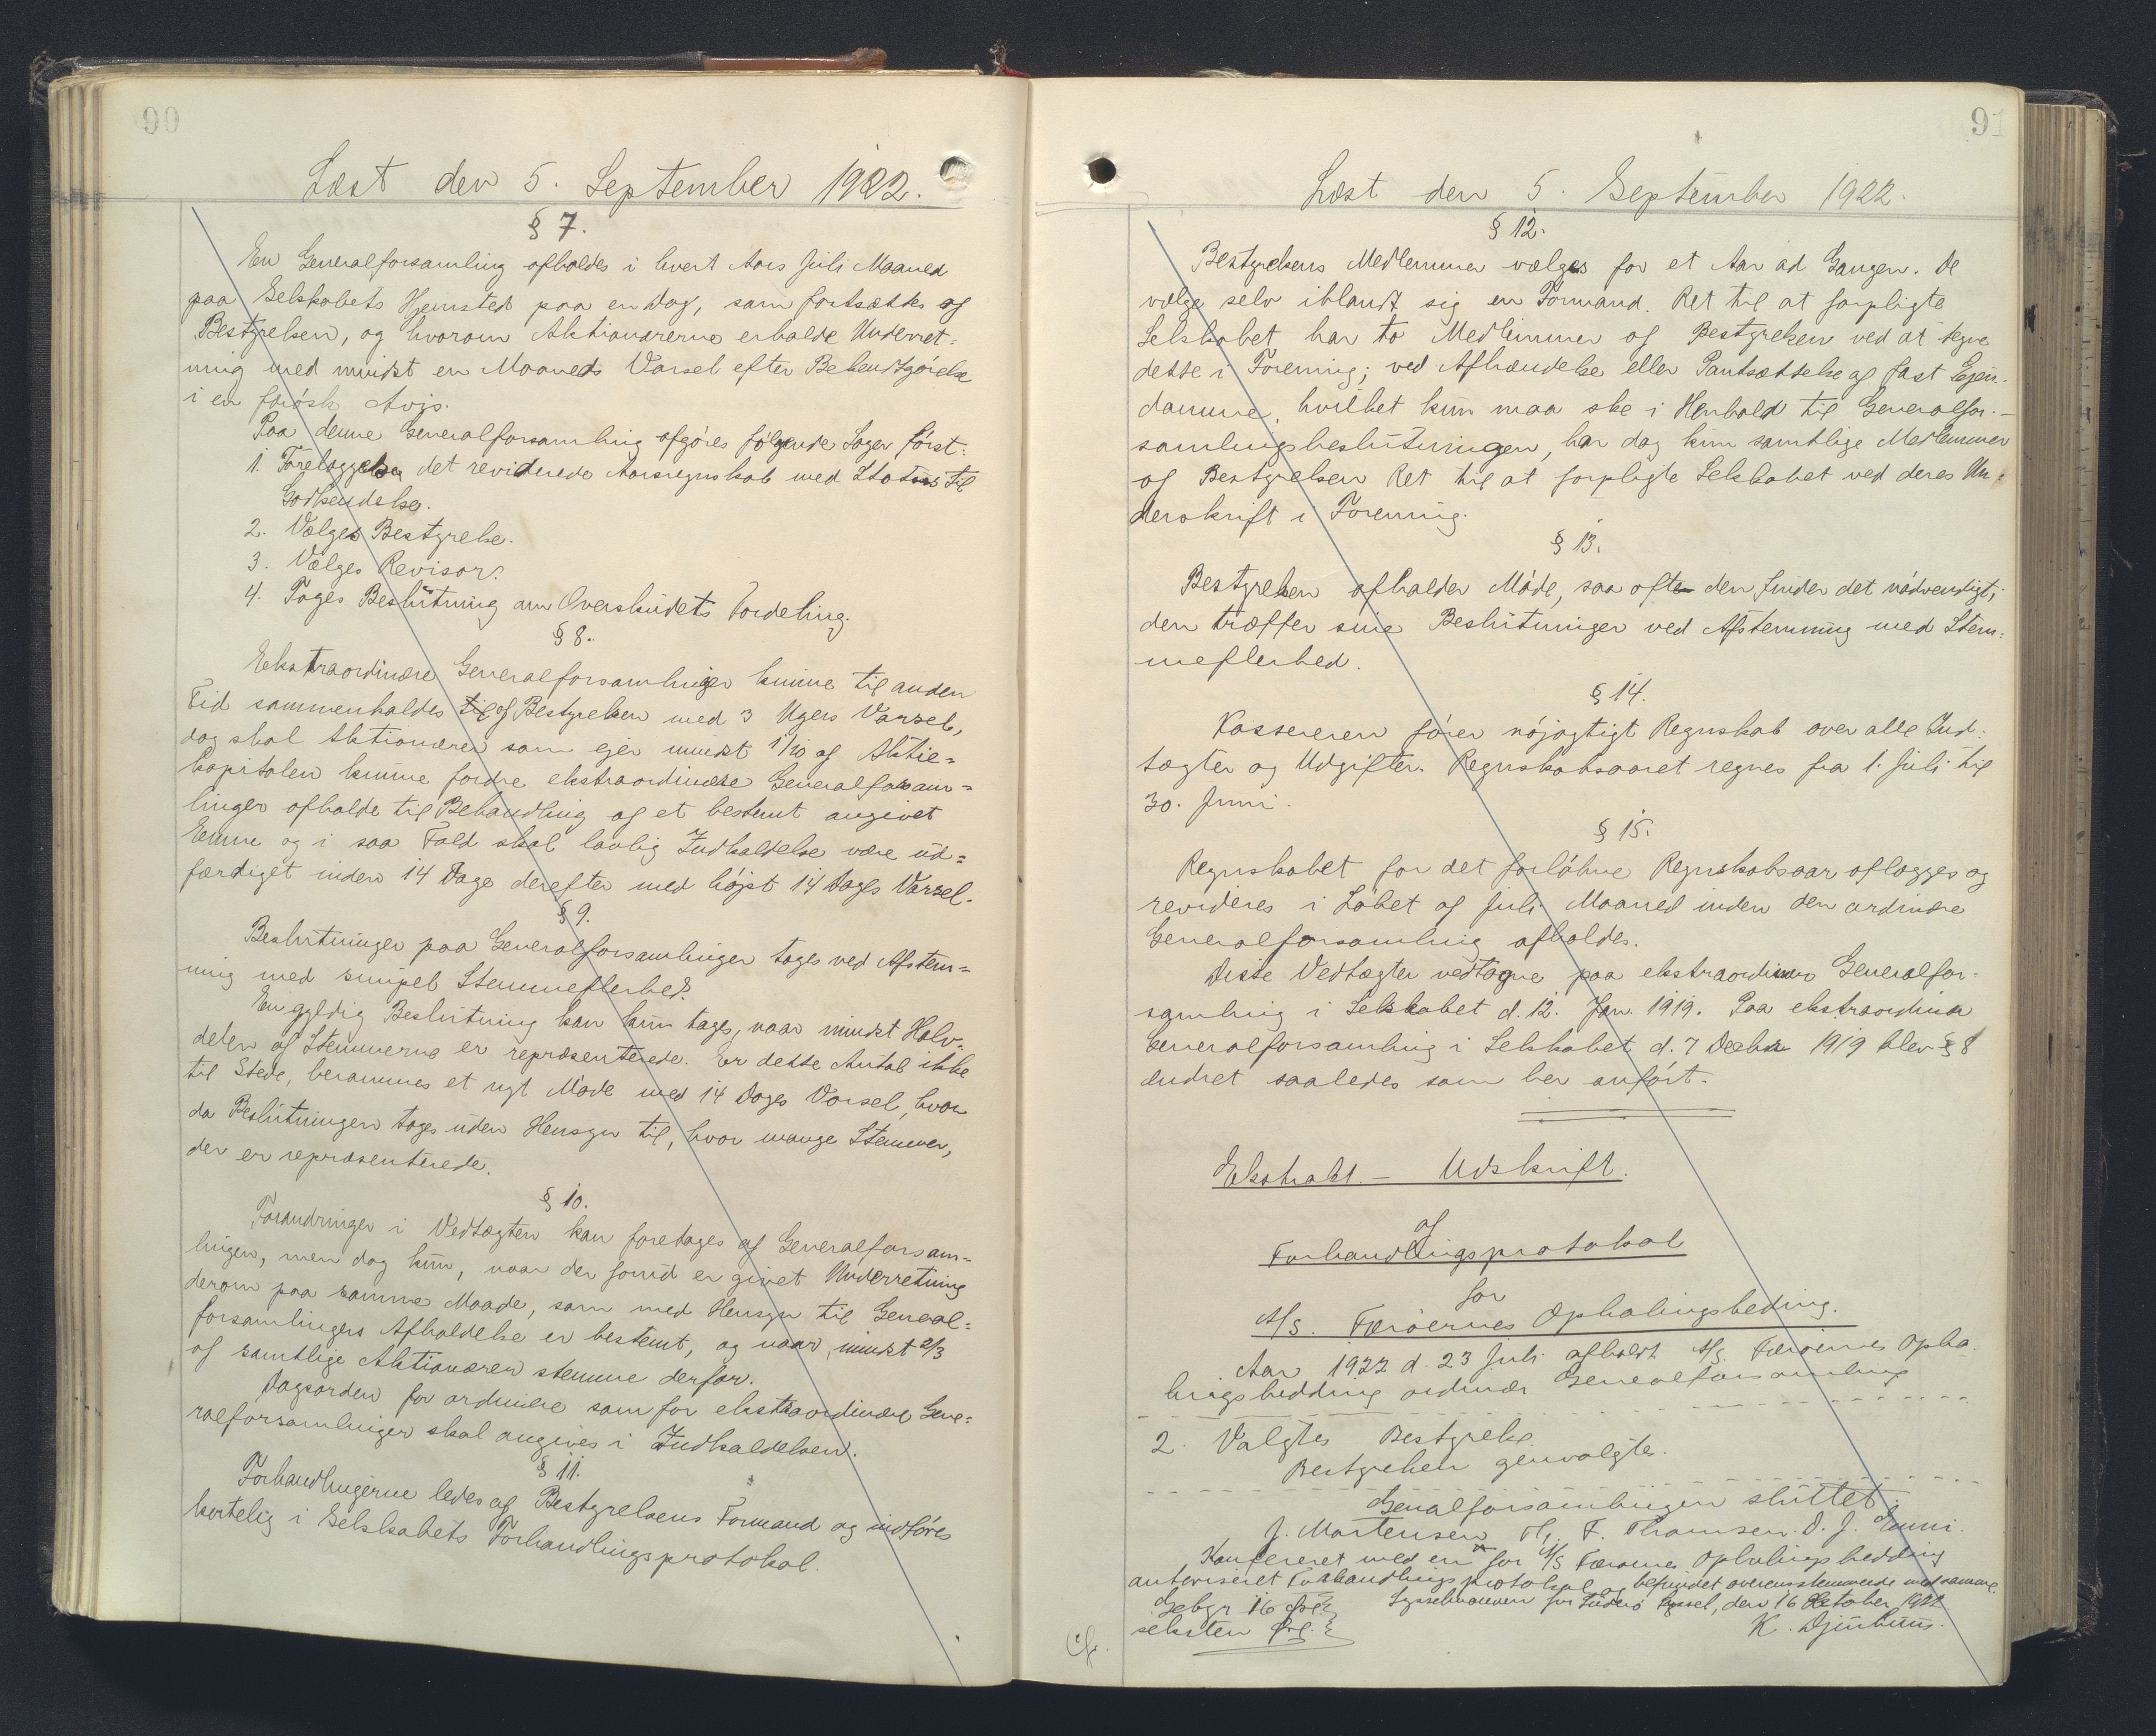 90
Læst den 5. September 1922.
§ 7.
En Generalforsamling afholdes i hvert Aars Juli Maaned
paa Selskabets Hjemsted paa en Dag, som fastsættes af
Bestyrelsen, og hvorom Aktionærerne erholde Underret-
ning med mindst en Maaneds Varsel efter Bekendtgörelse
i en færösk Avis.
Paa denne Generalforsamling afgöres fölgende Sager först:
1. Forelægges det reviderede Aarsregnskab med Status til
Godkendelse.
2. Vælges Bestyrelse.
3. Vælges Revisor.
4. Tages Beslutning om Overskudets Fordeling.
§ 8.
Ekstraordinære Generalforsamlinger kunne til anden
Tid sammenkaldes til af Bestyrelsen med 3 Ugers Varsel,
dog skal Aktionærer som ejer mindst 1/10 af Aktie=
kapitalen kunne fordre ekstraordinære Generalforsam=
linger afholdt til Behandling af et bestemt angivet
Emne og i saa Fald skal lovlig Indkaldelse være ud=
færdiget inden 14 Dage derefter med höjst 14 Dages Varsel.
§ 9.
Beslutninger paa Generalforsamlinger tages ved Afstem=
ning med simpel Stemmeflerhed.
En gyldig Beslutning kan kun tages, naar mindst Halv-
delen af Stemmerne er repræsenterede. Er dette Antal ikke
til Stede, berammes et nyt Möde med 14 Dages Varsel, hvor
da Beslutningen tages uden Hensyn til, hvor mange Stemmer,
der er repræsenterede.
§ 10.
Forandringer i Vedtægten kan foretages af Generalforsam=
lingen, men dog kun, naar der forud er givet Underretning
derom paa samme Maade, som med Hensyn til General=
forsamlingers Afholdelse er bestemt, og naar mindst 2/3
af samtlige Aktionærer stemme derfor.
Dagsorden for ordinære som for ekstraordinære Gene=
ralforsamlinger skal angives i Indkaldelsen.
§ 11.
Forhandlingerne ledes af Bestyrelsens Formand og indföres
kortelig i Selskabets Forhandlingsprotokol.
91
Læst den 5. September 1922.
§ 12.
Bestyrelsens Medlemmer vælges for et Aar ad Gangen. De
vælge selv iblandt sig en Formand. Ret til at forpligte
Selskabet har to Medlemmer af Bestyrelsen ved at tegne
dette i Forening; ved Afhændelse eller Pantsættelse af fast Ejen-
domme, hvilket kun maa ske i Henhold til Generalfor-
samlingsbeslutningen, har dog kun samtlige Medlemmer
af Bestyrelsen Ret til at forpligte Selskabet ved deres Un=
derskrift i Forening.
§ 13.
Bestyrelsen afholder Möde, saa ofte den finder det nödvendigt;
den træffer sine Beslutninger ved Afstemning med Stem=
meflerhed.
§ 14.
Kassereren förer nöjagtigt Regnskab over alle Ind-
tægter og Udgifter. Regnskabsaaret regnes fra 1. Juli til
30. Juni.
§ 15.
Regnskabet for det forlöbne Regnskabsaar aflægges og
revideres i Löbet af Juli Maaned inden den ordinære
Generalforsamling afholdes.
Disse Vedtægter vedtagne paa ekstraordinær Generalfor-
samling i Selskabet d. 12. Jan. 1919. Paa ekstraordinær
Generalforsamling i Selskabet d. 7 Decbr 1919 blev § 8
ændret saaledes som her anfört.
Ekstrakt.- Udskrift.
af
Forhandlingsprotokol
for
A/S. Færöernes Ophalingsbeding.
Aar 1922 d. 23 Juli afholdt A/S. Færöernes Opha-
lingsbedding ordinær Generalforsamling
2. Valgtes Bestyrelse.
Bestyrelsen genvalgtes.
Genalforsamlingen sluttet.
J. Mortensen F. Thomsen. D. J. Emni.
Konfereret med en for A/S Færöernes Ophalingsbedding
autoriseret Forhandlingsprotokol og befundet overensstemmende med samme.
Sysselmanden for Suderö Syssel, den 16 Oktober 1922
Gebyr 16 Øre
seksten Øre.
K. Djurhuus.